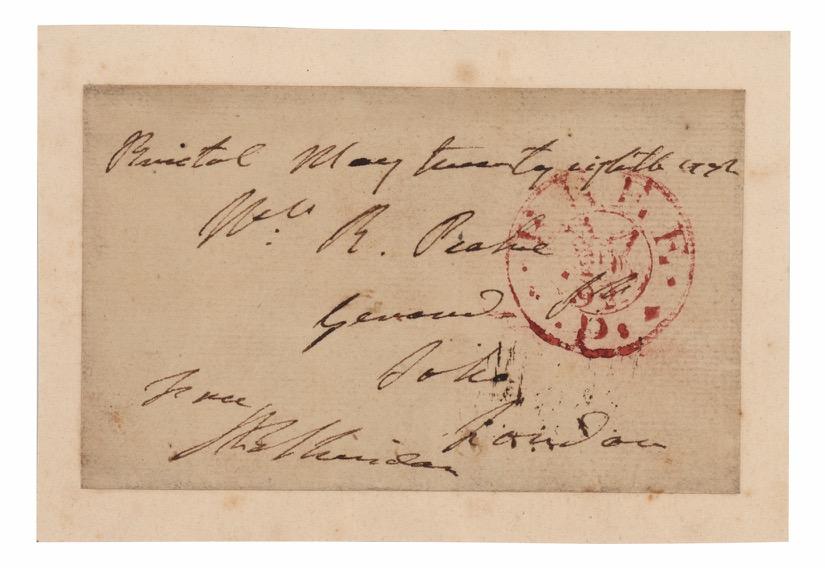 Bristol May twenty eighth 1792
Wll R. Peake
Gerrard Str
Soho
London
free
RBSheridan
FREE